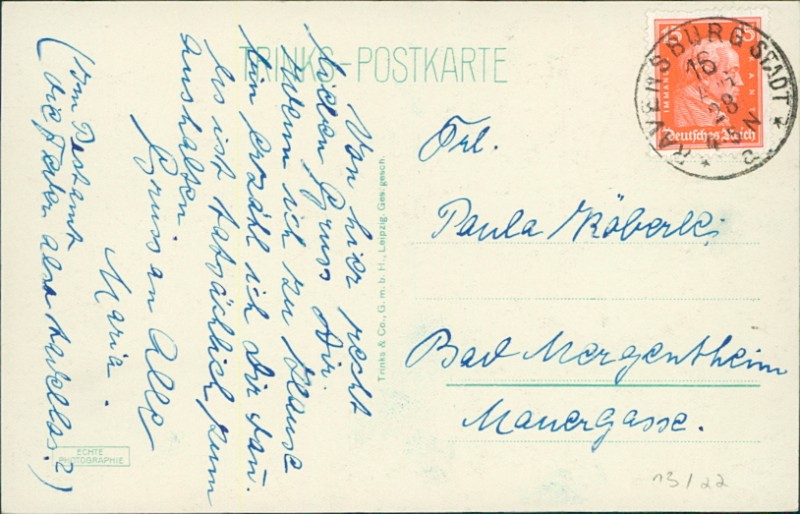 TRINKS-POSTKARTE
Von hier recht
lieben Gruss Dir.
Wenn ich zu Hause
bin erzähl ich Dir dann.
Es ist tatsächlich zum
aushalten
Gruss an Alle
Maria.
(vom Postamt
die Farben also
Trinks & Co., G. m. b. H., Leipzig. Ges. gesch.
ECHTE
PHOTOGRAPHIE
15 15
IMMANUEL KANT
Deutsches Reich
RAVENSBURG STADT
16
28
Frl.
Paula Köberle
Bad Mergentheim
Mauergasse.
13/22